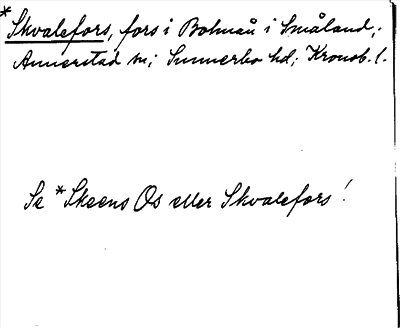 *Skvalefors, fors i Bolmån i Småland;
Annerstad sn; Sunnerbo hd; Kronob. l.
Se *Skeens Os eller Skvalefors!